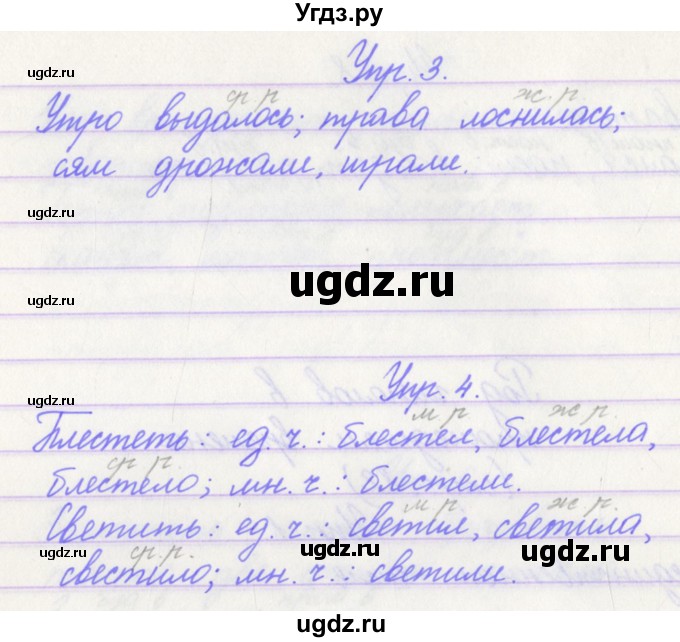 Угдз.ру
ugdz.ru ugdz.ru
Упр. 3.
ср р ж. р
Утро выдалось; трава лоснилась;
ugdz.ru
сям дрожали, играли.
ugdz.ru
ugdz.ru
ugdz.ru
ugdz.ru
Упр. 4.
м р ж р.
Плестеть: ед. ч.: блестел, блестела,
ugdz.ru
ср р.
блестело; мн. ч.: блестели.
м р. ж р.
Светить: ед. ч.: светил, светила,
ugdz.ru ugdz.ru ugdz.ru
ср. р.
свестило; мн. ч.: светили.
ugdz.ru
ugdz.ru